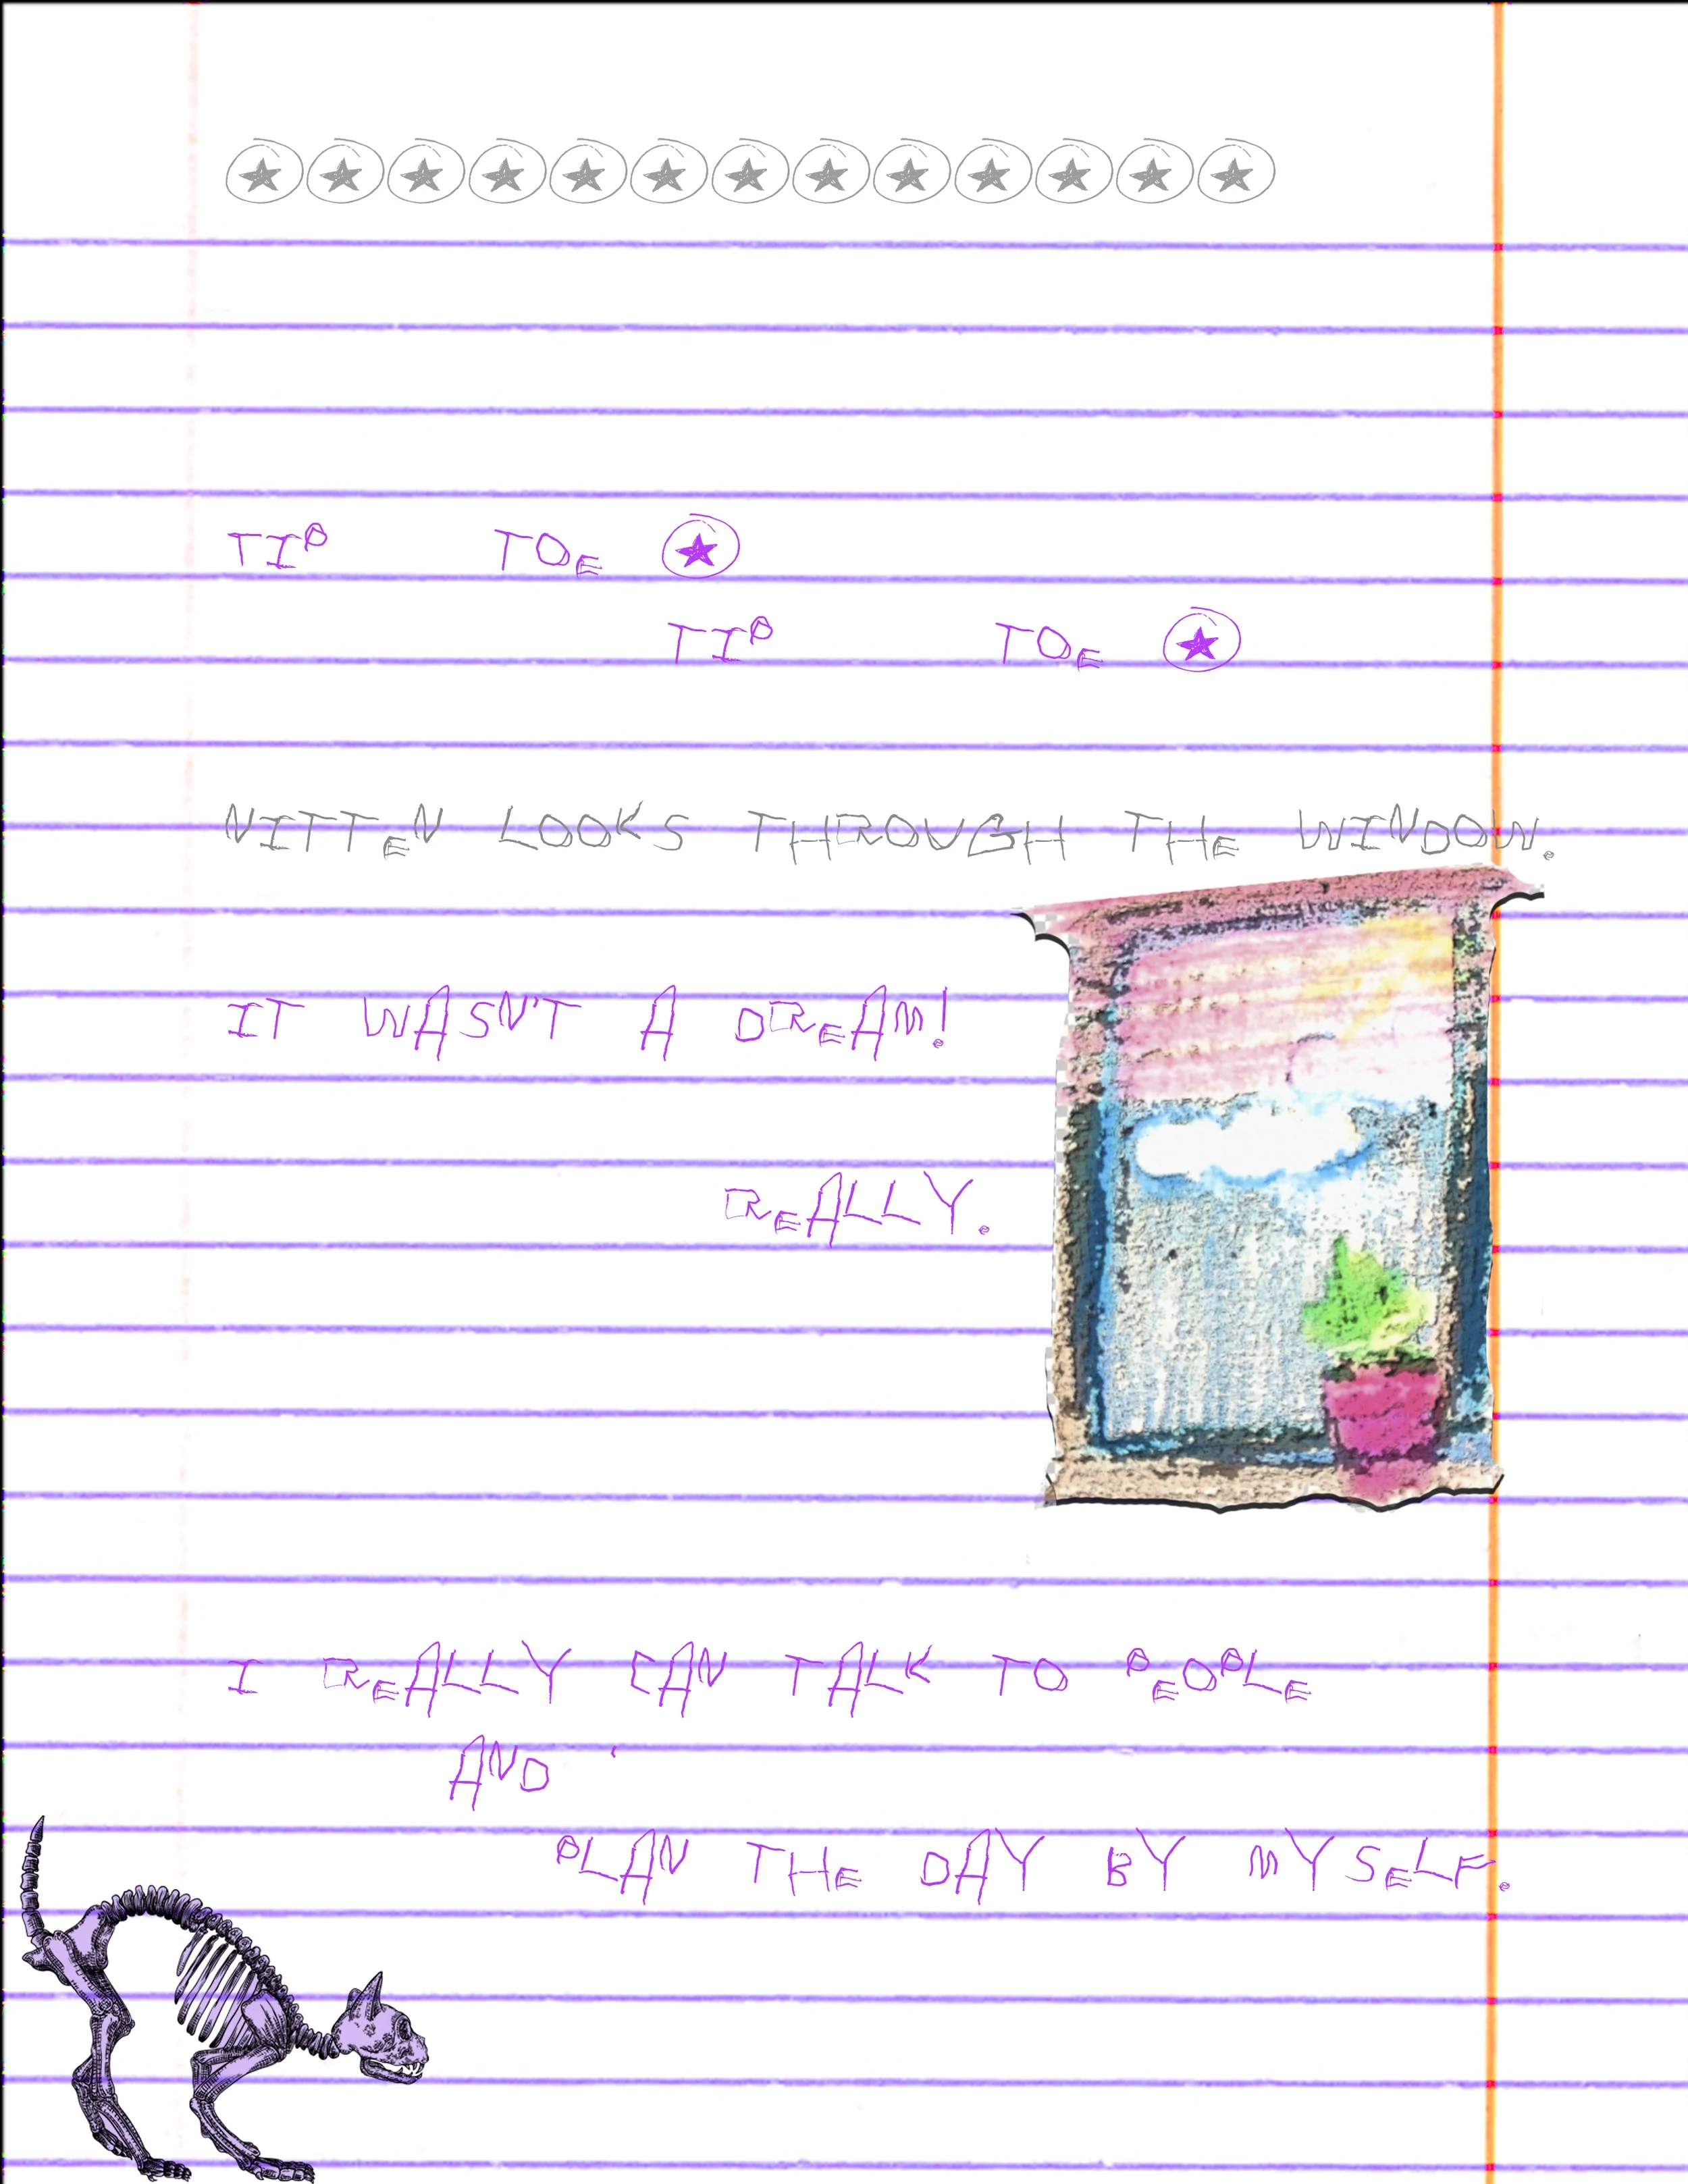 TIP TOE
TIP TOE
NITTEN LOOKS THROUGH THE WINDOW.
IT WASN'T A DREAM!
REALLY.
I REALLY CAN TALK TO PEOPLE
AND
PLAN THE DAY BY MYSELF.